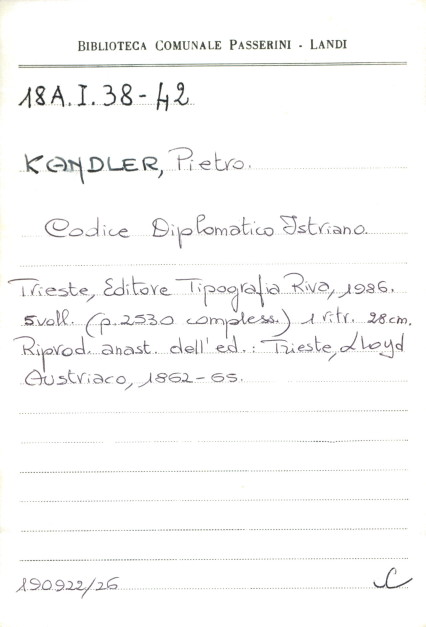 BIBLIOTECA COMUNALE PASSERINI - LANDI
18A.I.38-42
KANDLER, Pietro.
Codice Diplomatico Istriano.
Trieste, Editore Tipografia Riva, 1986.
5 voll. (p. 2530 compless.) 1 ritr. 28 cm.
Riprod. anast. dell'ed.: Trieste, Lloyd
Austriaco, 1862-65.
190922/26
C